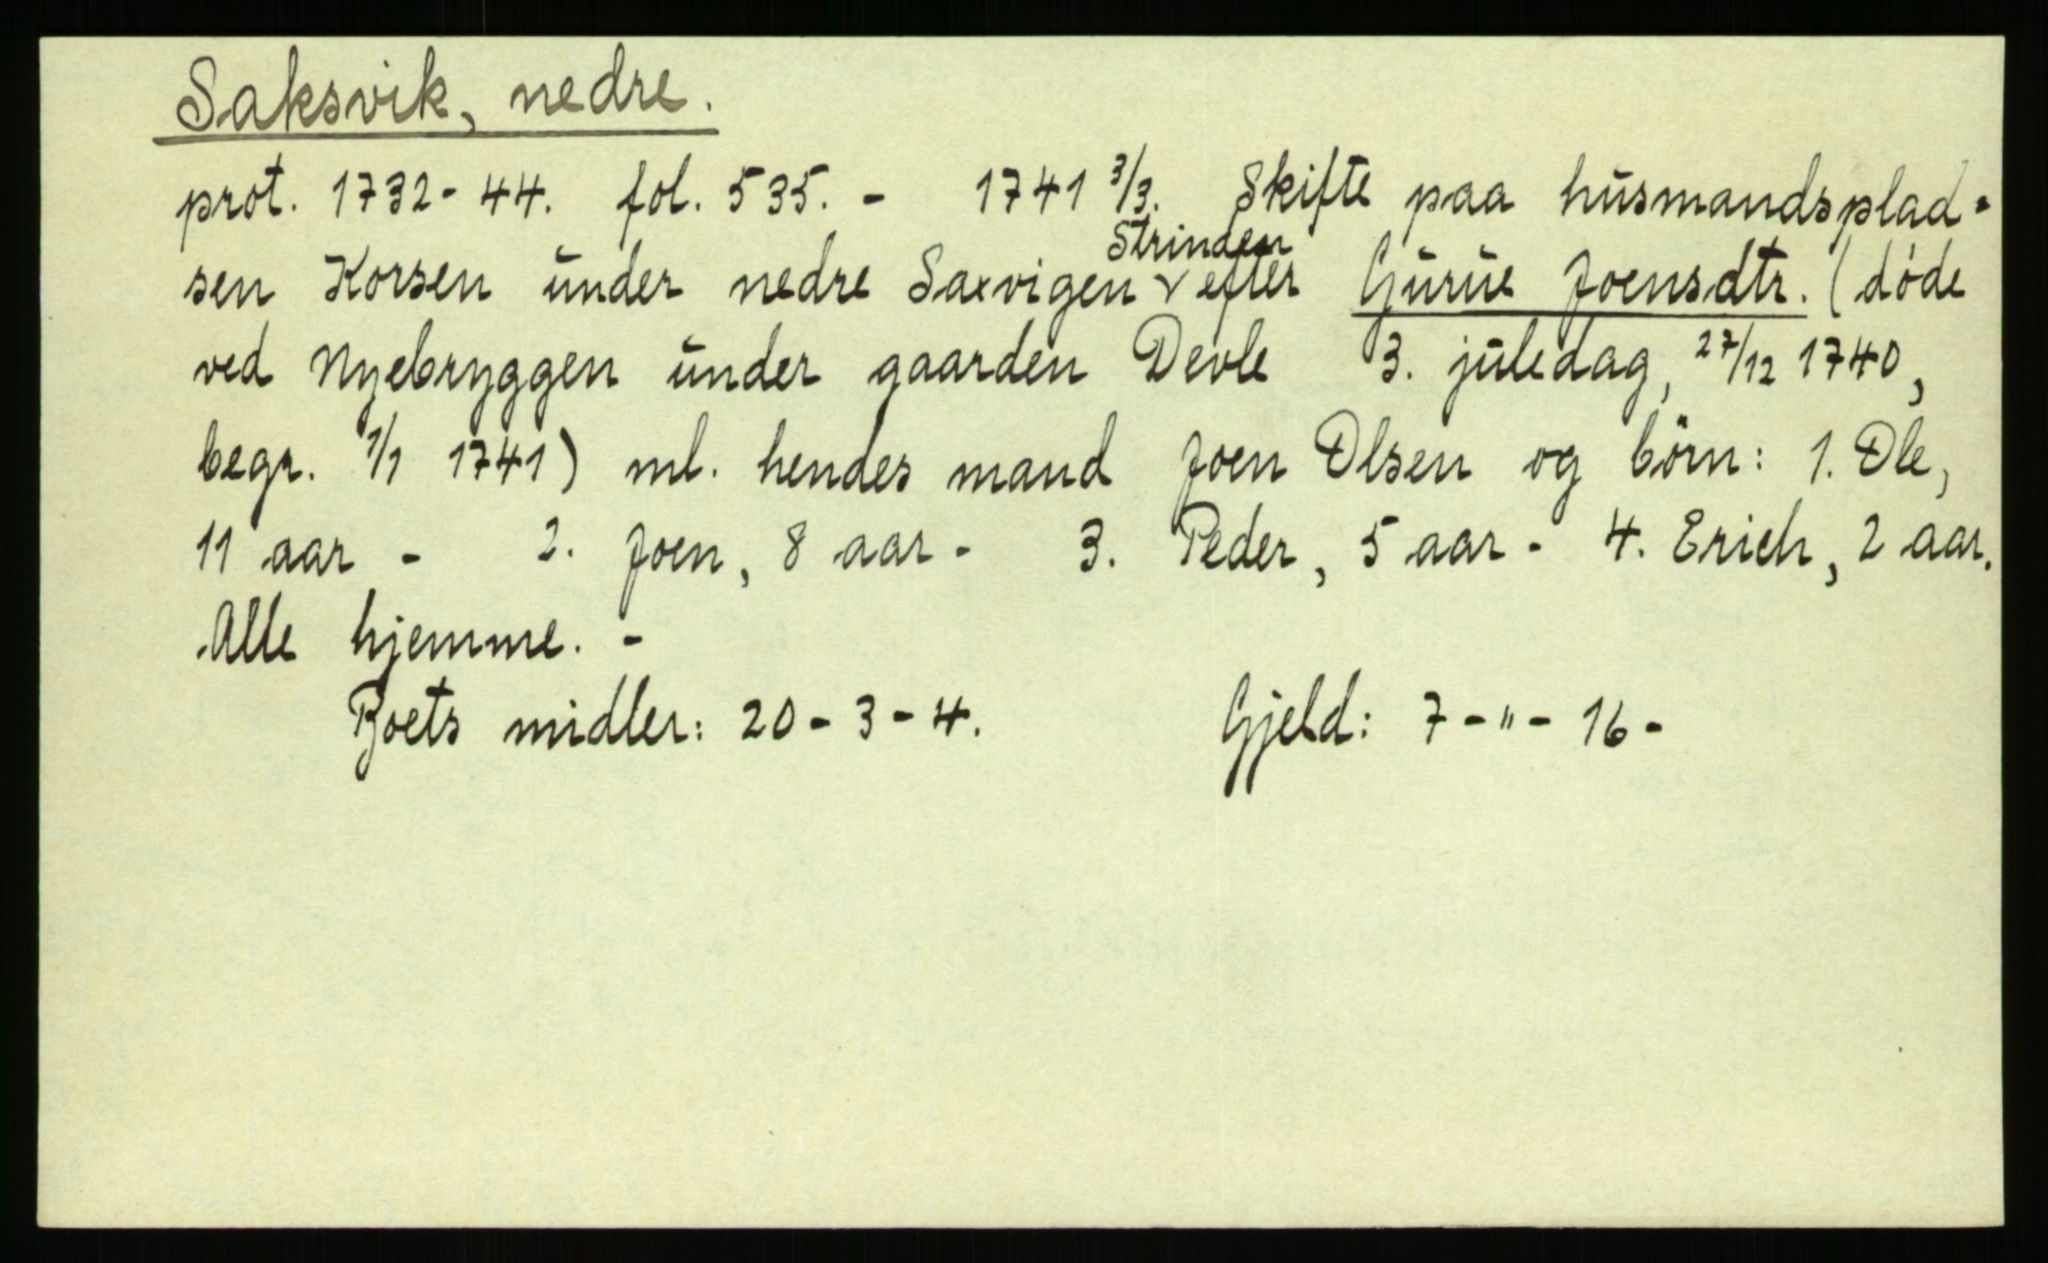 Saksvik, nedre.
prot. 1732-44. fol. 535. - 1741 3/3. Skifte paa husmandsplad-
sen Korsen under nedre Saxvigen ∨ Strinden efter Gurue Joensdtr. (døde
ved Nyebryggen under gaarden Devle 3. juledag, 27/12 1740,
begr. 1/1 1741) ml. hendes mand Joen Olsen og börn: 1. Ole,
11 aar - 2. Joen, 8 aar - 3. Peder, 5 aar - 4. Erich, 2 aar.
Alle hjemme. -
Boets midler: 20 - 3 - 4. Gjeld: 7 - " - 16 -